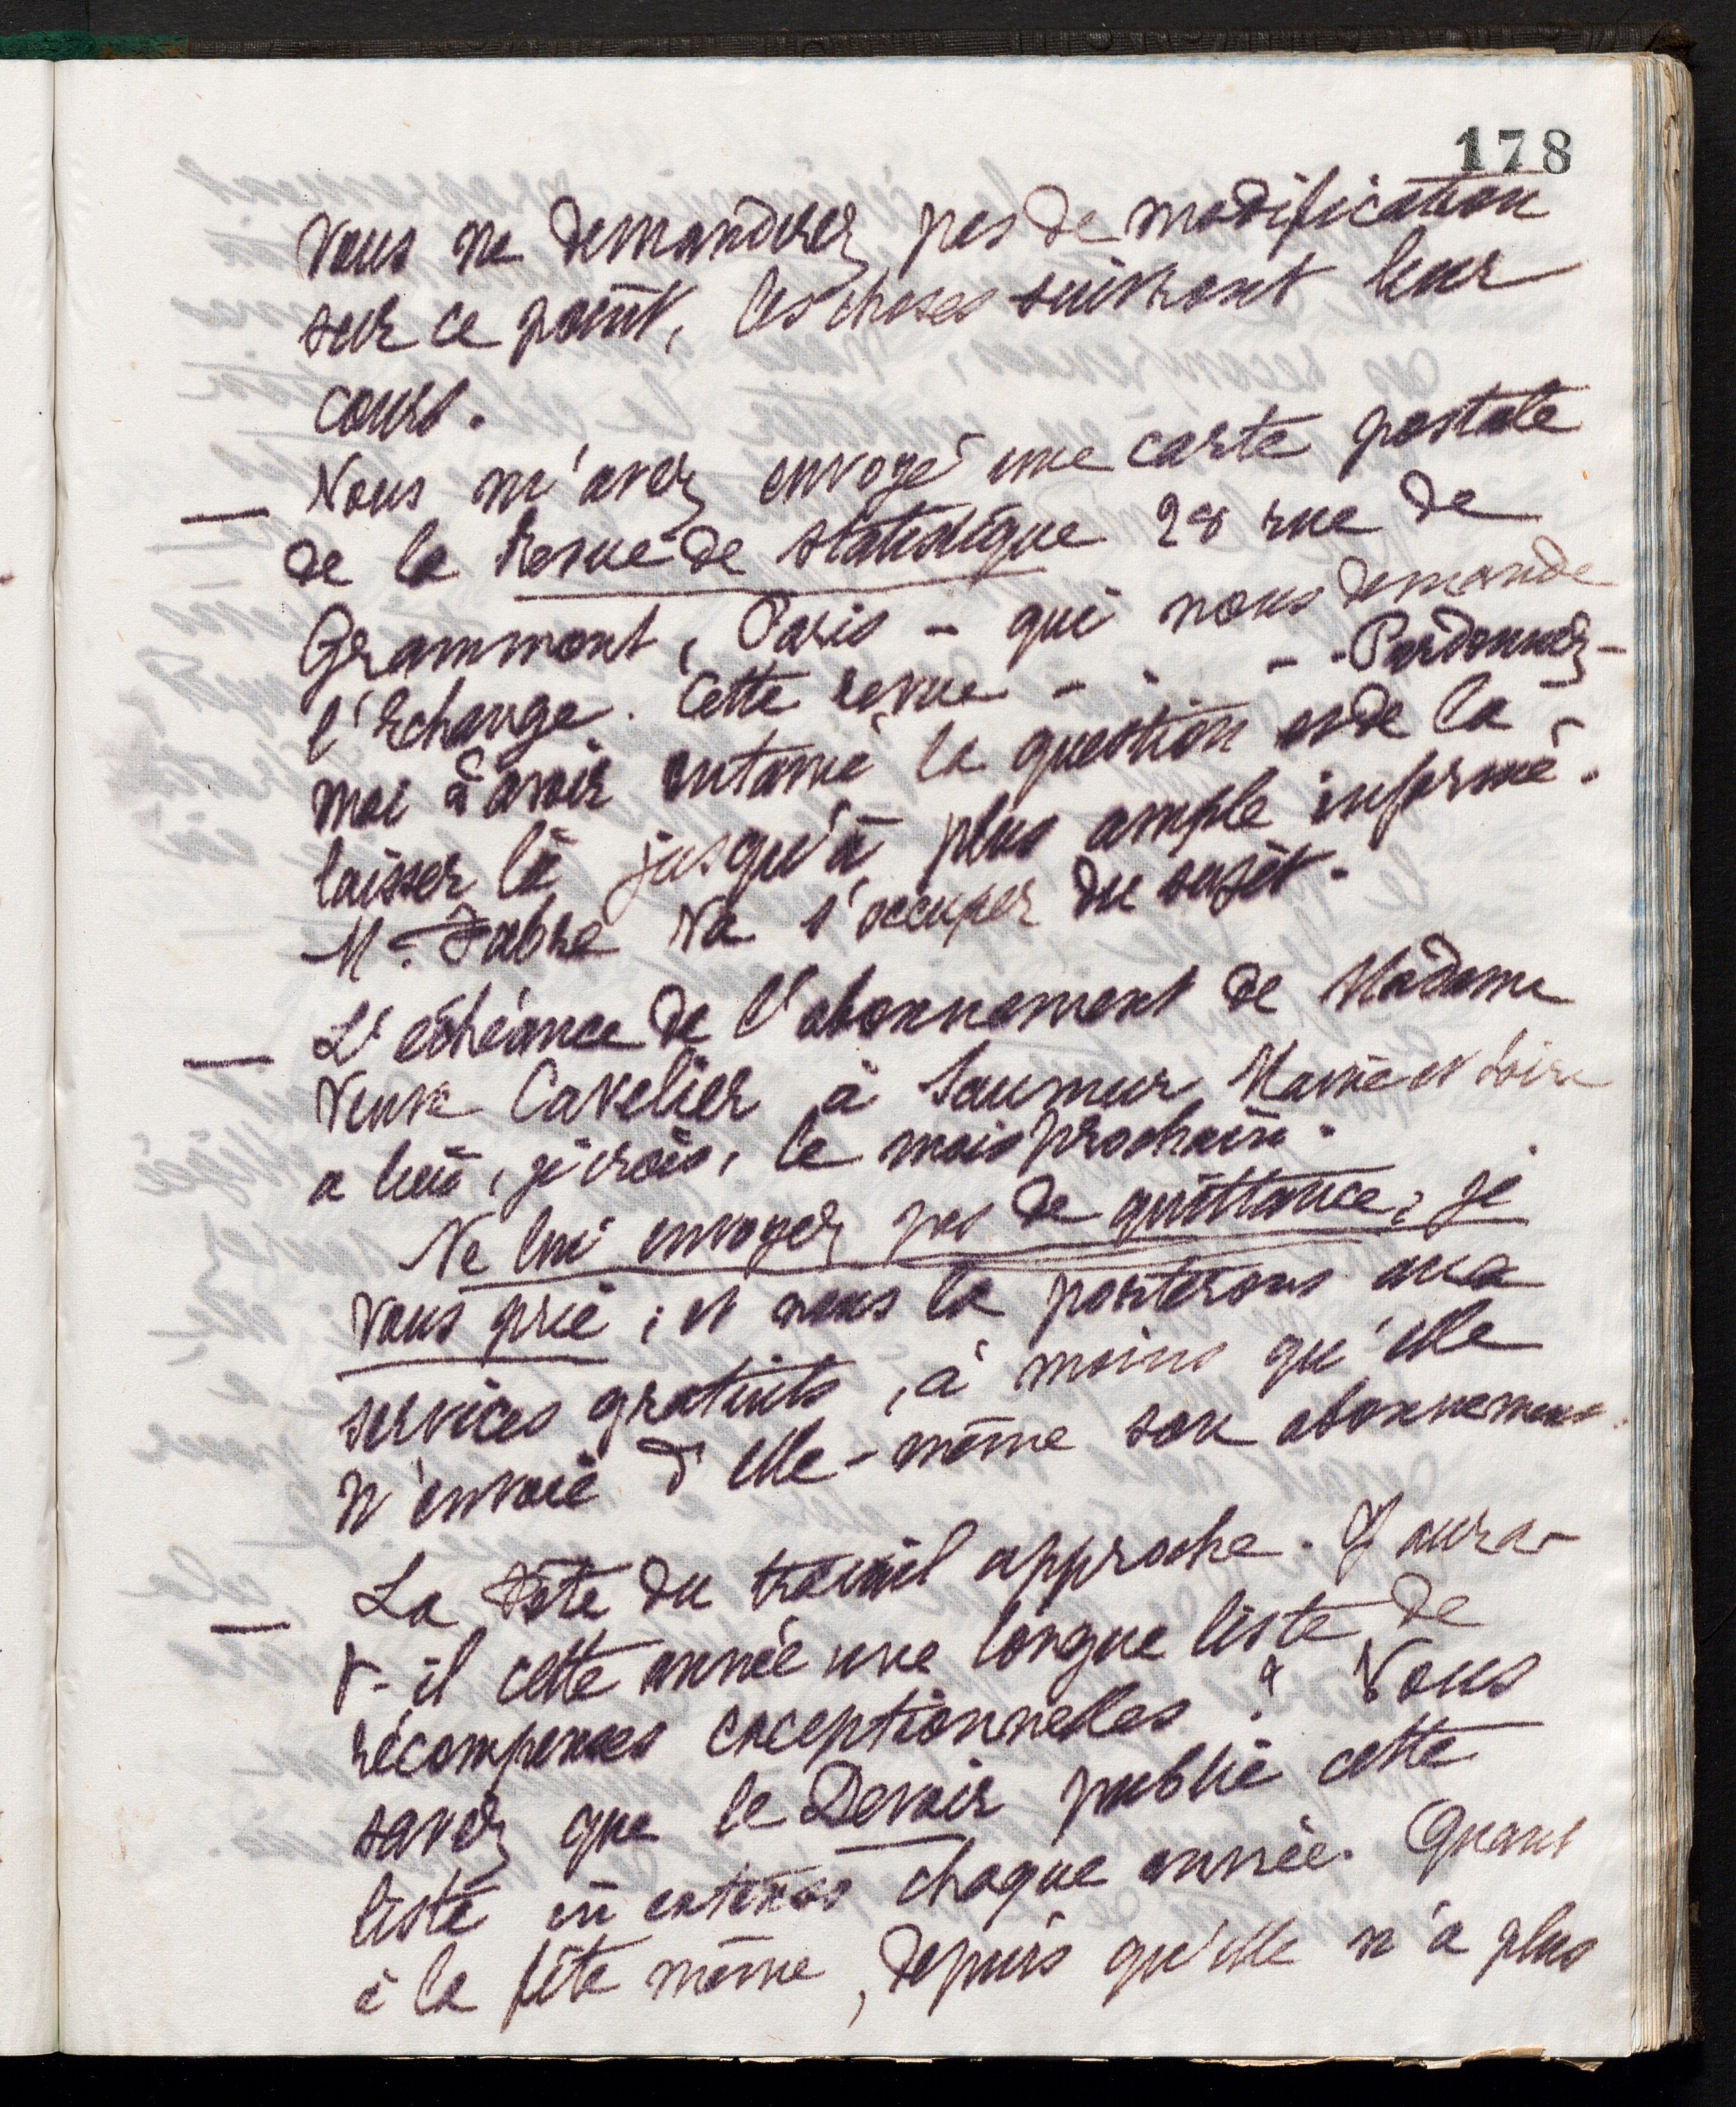 178
vous ne demanderez pas de modification
sur ce point, les choses suivront leur
cours.
— Vous m'avez envoyé une carte postale
de la Revue de statistique 28 rue de
Grammont, Paris - qui nous demande
l'échange. Cette revue - . - - Pardonnez-
moi d'avoir entamé la question et de la
laisser là jusqu'à plus ample informé.
M. Fabre va s'occuper du sujet.
— L'échéance de l'abonnement de Madame
Veuve Cavelier à Saumur Maine et Loire
a lieu, je crois, le mois prochain.
Ne lui envoyez pas de quittance, je
vous prie ; et nous la porterons aux
services gratuits, à moins qu'elle
n'envoie d'elle-même son abonnement.
— La Fête du travail approche. Y aura-
t-il cette année une longue liste de
récompenses exceptionnelles ? Vous
savez que le Devoir publie cette
liste in extenso chaque année. Quant
à la fête même, depuis qu'elle n'a plus